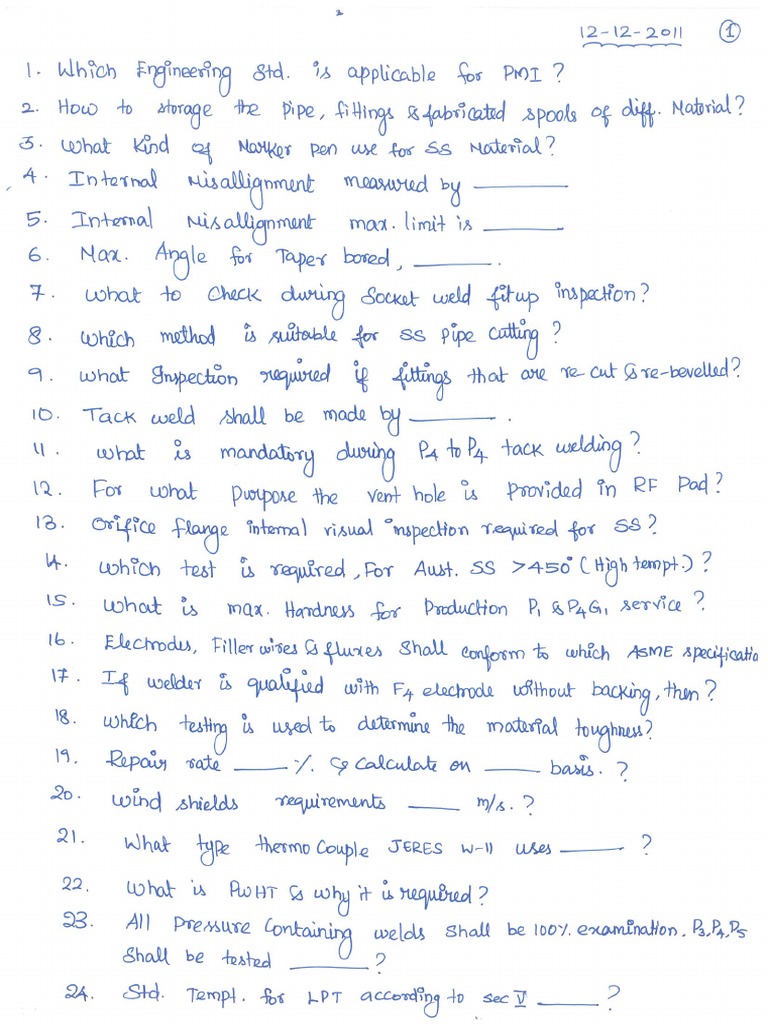 12-12-2011 1
1. Which Engineering Std. is applicable for PMI?
2. How to storage the pipe, fittings & fabricated spools of diff. Material?
3. What Kind of Marker pen use for SS Material?
4. Internal Misallignment measured by ______
5. Internal Misallignment max. limit is ______
6. Max. Angle for Taper bored, ______.
7. What to Check during Socket weld fitup inspection?
8. Which method is suitable for SS Pipe Cutting?
9. What Inspection required if fittings that are re-cut & re-bevelled?
10. Tack weld shall be made by ______.
11. What is mandatory during P4 to P4 tack welding?
12. For what purpose the vent hole is Provided in RF Pad?
13. Orifice flange internal visual inspection required for SS?
14. Which test is required, For Aust. SS >450° (High tempt.)?
15. What is max. Hardness for Production P1 & P4G1 service?
16. Electrodes, Filler wires & fluxes Shall conform to which ASME specificatio
17. If welder is qualified with F4 electrode without backing, then?
18. Which testing is used to determine the material toughness?
19. Repair rate ______ %. & Calculate on ______ basis.?
20. Wind shields requirements ______ m/s.?
21. What type thermo Couple JERES W-11 uses ______?
22. What is PWHT & why it is required?
23. All Pressure Containing welds Shall be 100% examination. P3, P4, P5
Shall be tested ______?
24. Std. Tempt. for LPT according to sec V ______?